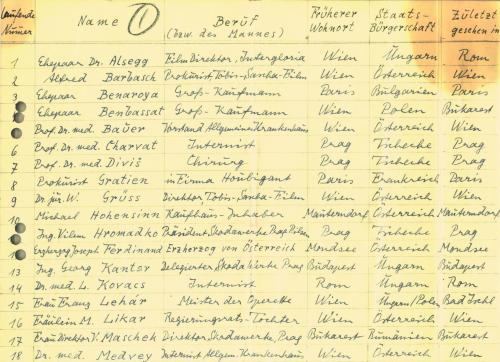 Laufende Numer Name (1) Beruf (bzw. des Mannes) Früherer Wohnort Staats-Bürgerschaft Zuletzt gesehen in
1 Ehepaar Dr. Alsegg Filmdirektor, Intergloria Wien Ungarn Rom
2 Alfred Barbasch Prokurist Tobis-Sascha-Film Wien Österreich Wien
3 Ehepaar Benaroya Groß-Kaufmann Paris Bulgarien Paris
Ehepaar Benbassat Groß-Kaufmann Wien Polen Bukarest
Prof. Dr. med. Bauer Vorstand Allgemeine Krankenhaus Wien Österreich Wien
6 Prof. Dr. med. Charvat Internist Prag Tscheche Prag
7 Prof. Dr. med. Diviš Chirurg Prag Tscheche Prag
8 Prokurist Gratien in Firma Houbigant Paris Frankreich Paris
9 Dr. jur. W. Grüss Direktor, Tobis-Sascha-Film Wien Österreich Wien
10 Michael Hohensinn Kaufhaus-Inhaber Mauterndorf Österreich Mauterndorf
Ing. Vilem Hromadko Präsident Skodawerke Prag Pilsen Prag Tscheche Prag
Erzherzog Joseph Ferdinand Erzherzog von Österreich Mondsee Österreich Mondsee
13 Ing. Georg Kantor Delegierter Skoda Werke Prag Budapest Ungarn Budapest
14 Dr. med. L. Kovacs Internist Rom Ungarn Rom
15 Frau Franz Lehár Meister der Operette Wien Ungarn/Polen Bad Ischl
16 Fräulein M. Likar Regierungsrats-Tochter Wien Österreich Wien
17 Frau Direktor V. Maschek Direktor Skodawerke, Prag Bukarest Rumänien Bukarest
18 Dr. med. Medvey Internist Allgem. Krankenhaus Wien Österreich Wien